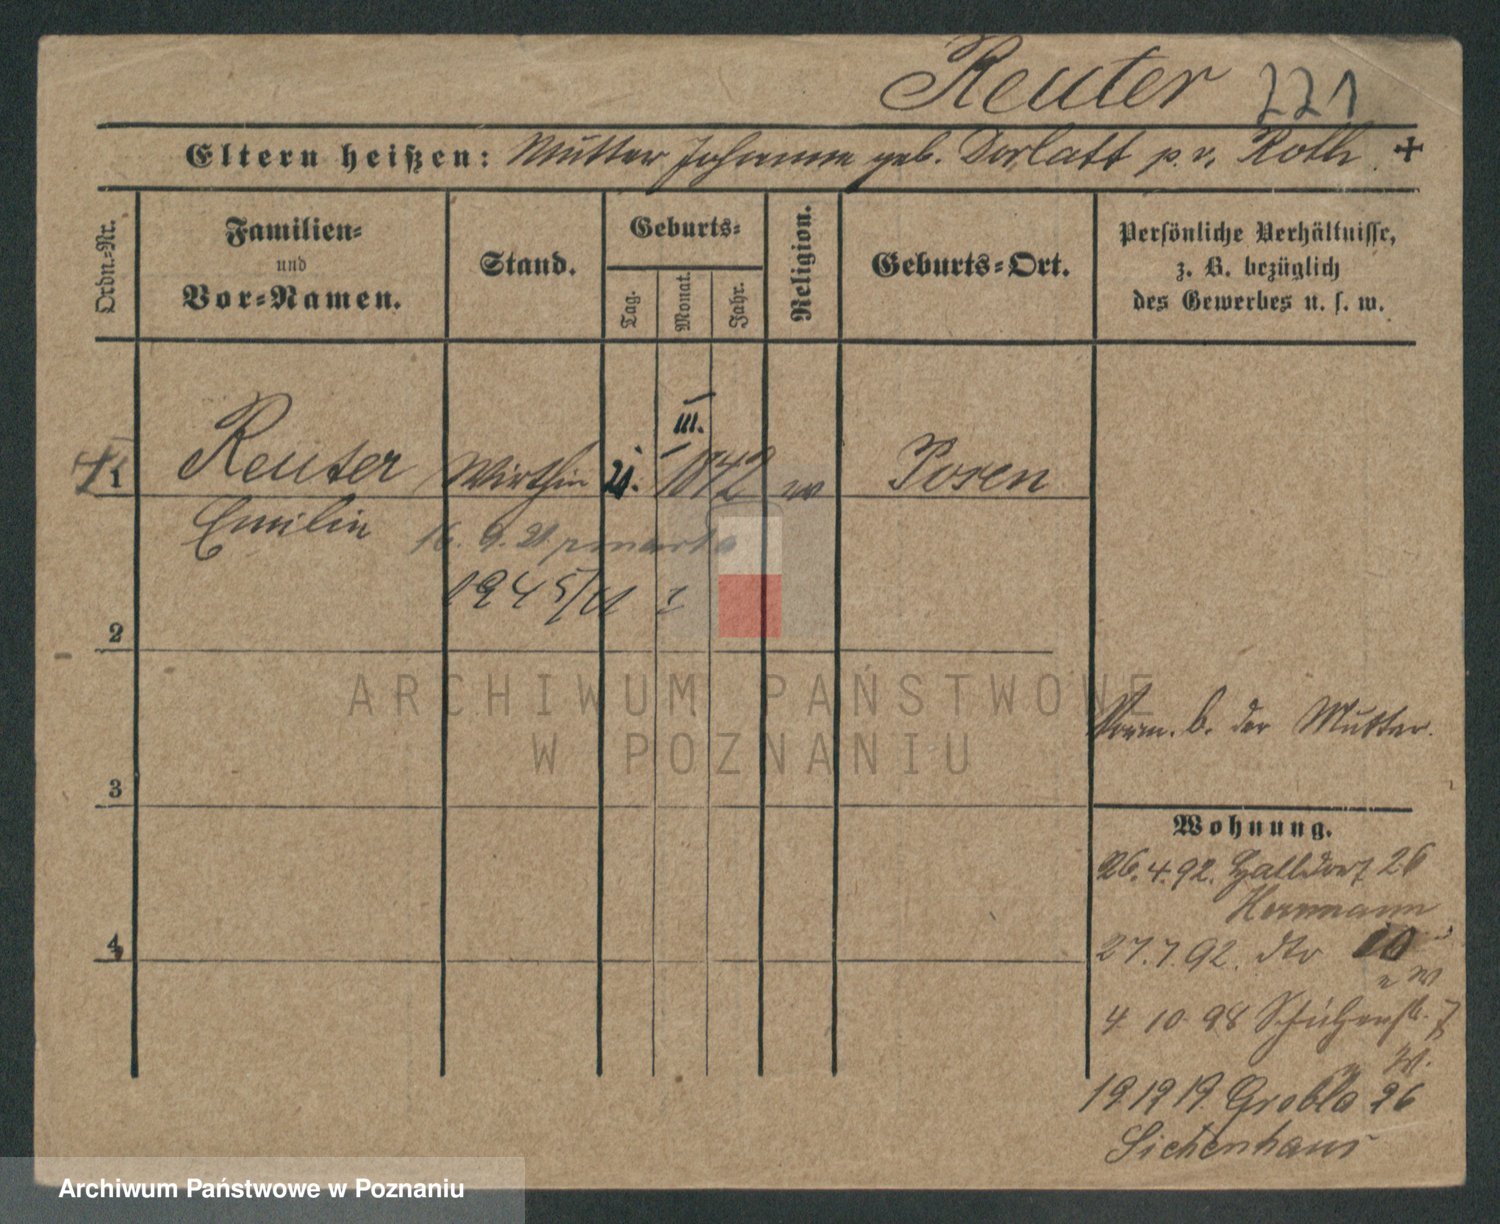 Reuter 221
Eltern heißen: Mutter Johanna geb. Dorlatt p. v. Roth +
Ordn.-Nr.
Familien-
und
Vor-Namen.
Stand.
Geburts-
Tag.
Monat.
Jahr.
Religion.
Geburts-Ort.
Persönliche Verhältnisse,
z. B. bezüglich
des Gewerbes u. s. w.
III.
1 Reuter Wirthin 21. 1842 Posen
Emilie 16. 9. 21 zmarła
1945/11
2
b. der Mutter.
3
Wohnung.
26. 4. 92. Halldorf 26
Herrmann
4
27. 7. 92. dto 10
4. 10. 98 Schützenstr. 7
19 12 19. Grobla 26
Siechenhaus
ARCHIWUM PAŃSTWOWE
W POZNANIU
Archiwum Państwowe w Poznaniu